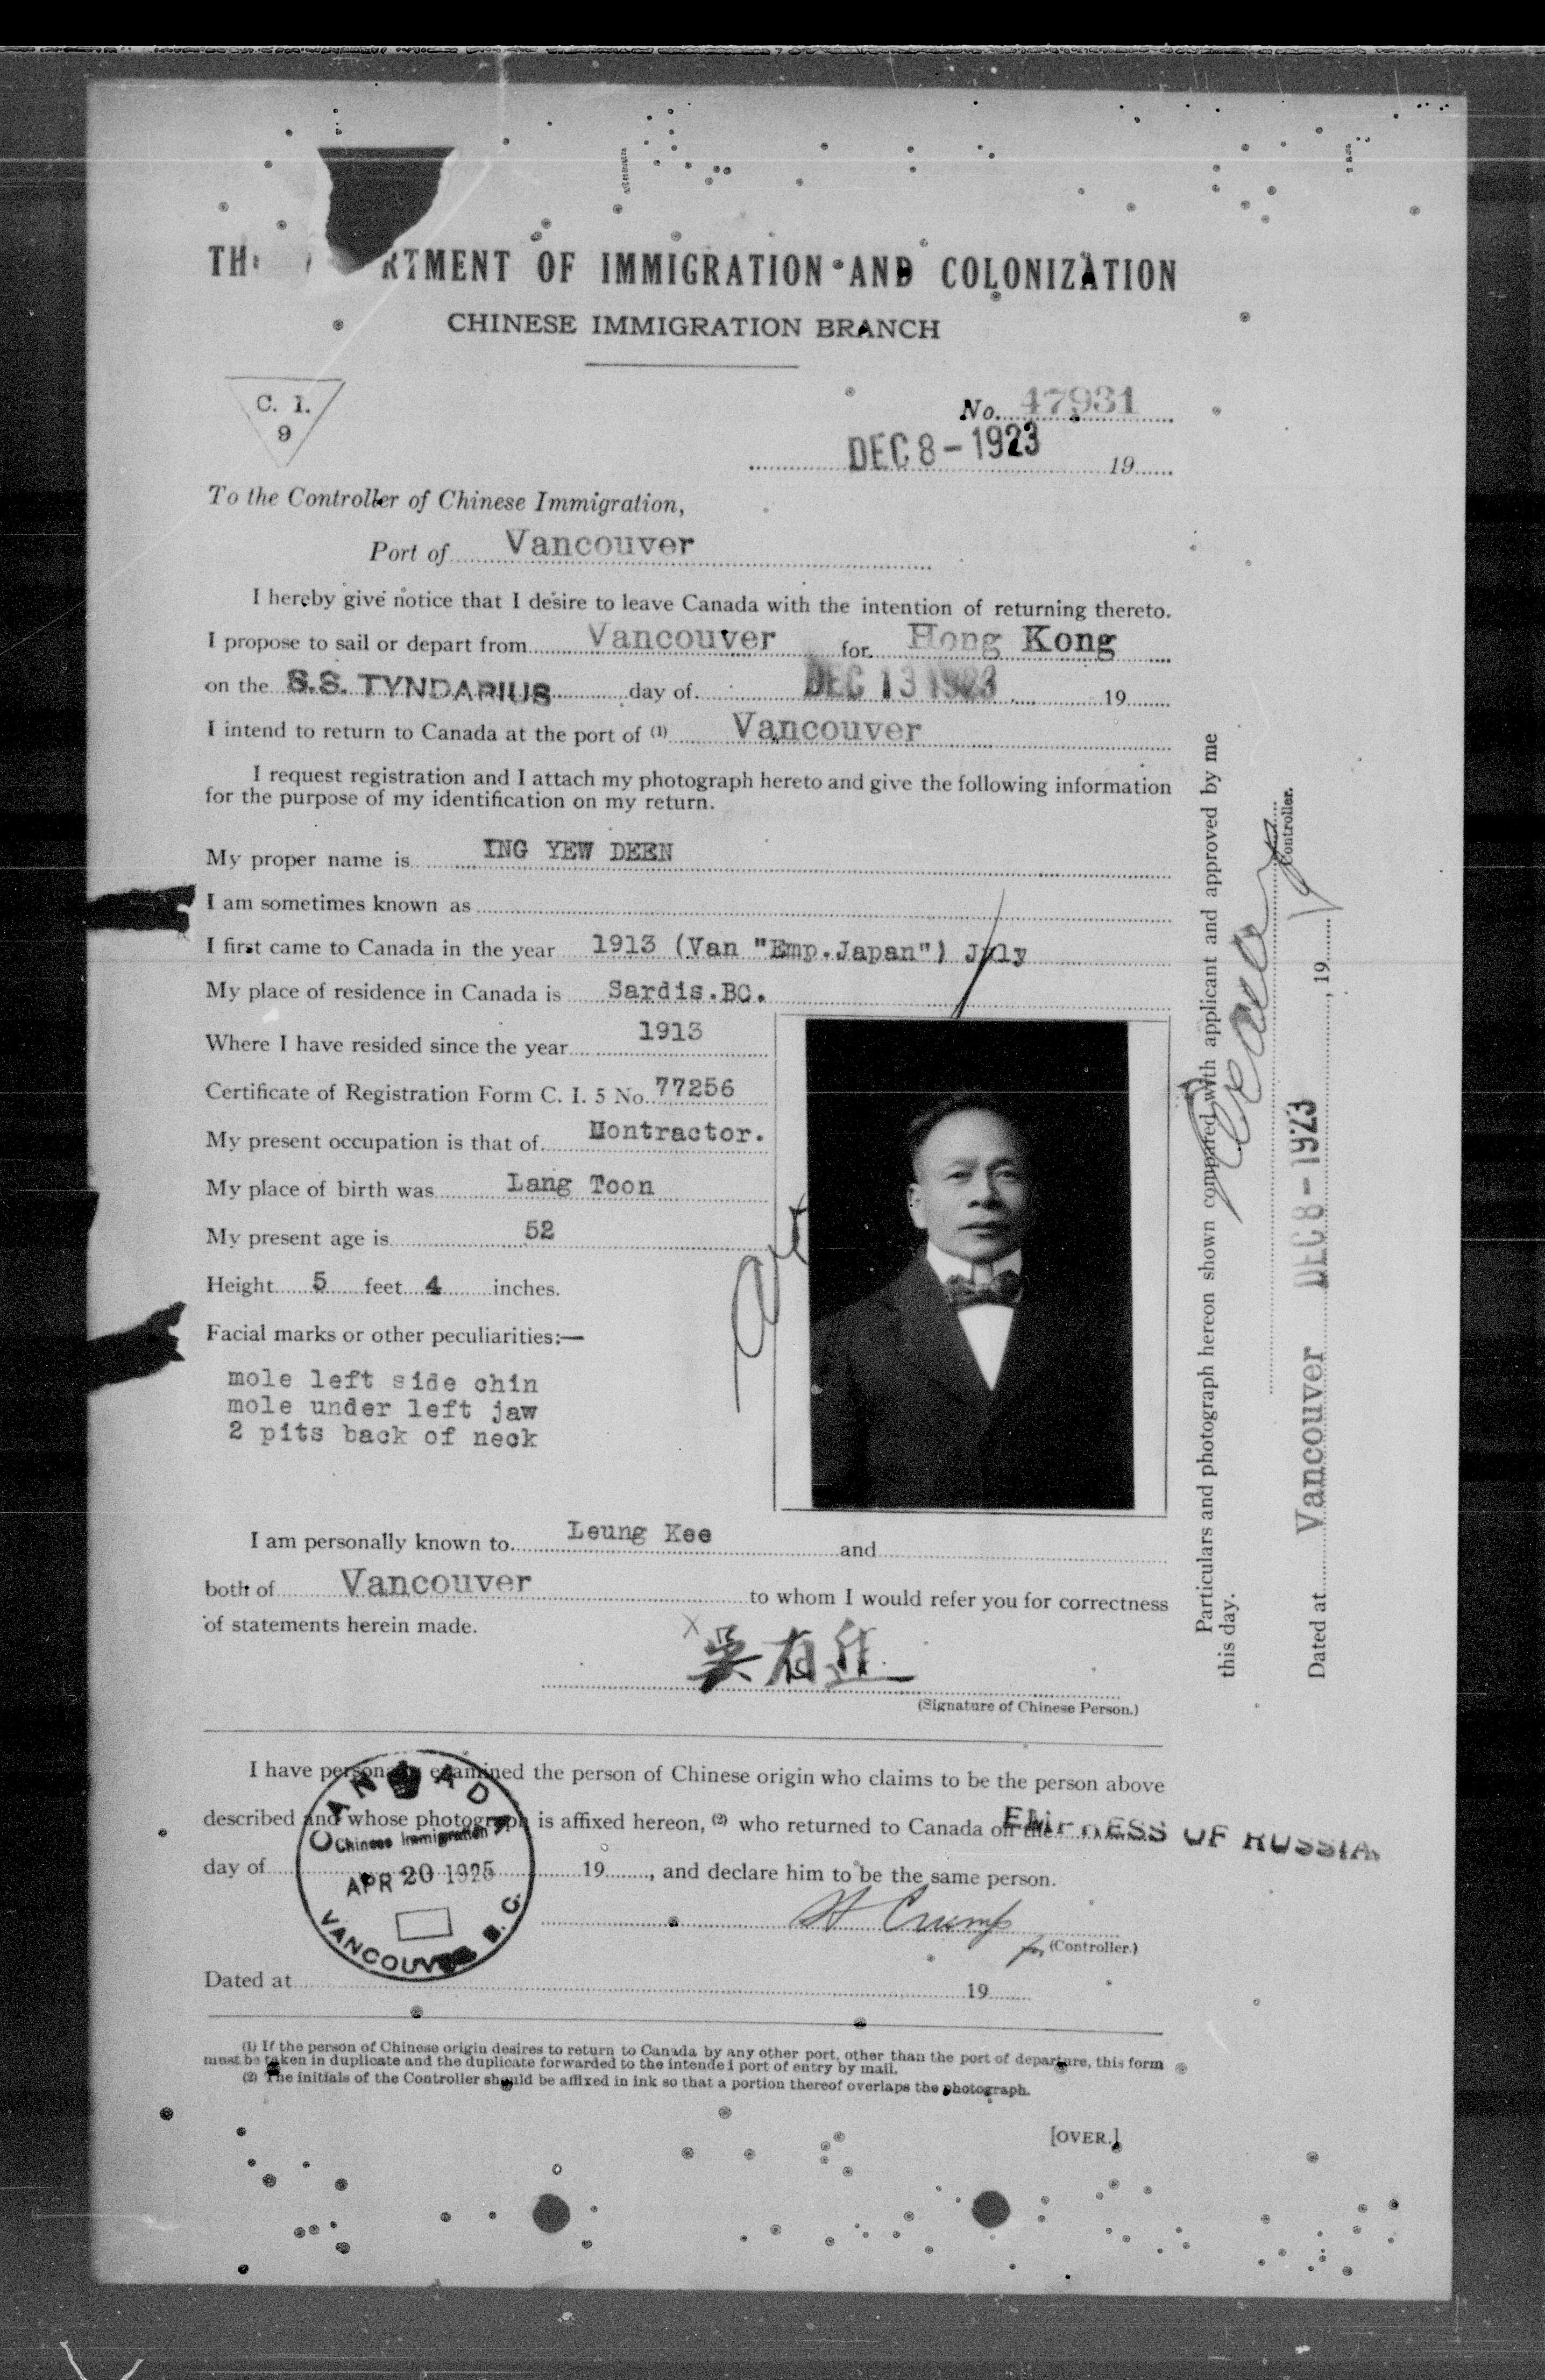 TH RTMENT OF IMMIGRATION AND COLONIZATION
CHINESE IMMIGRATION BRANCH
C. I.
9
No. 47931
DEC 8 - 1923 19
To the Controller of Chinese Immigration,
Port of Vancouver
I hereby give notice that I desire to leave Canada with the intention of returning thereto.
I propose to sail or depart from Vancouver for Hong Kong
on the S.S. TYNDARIUS day of DEC 13 1923 19
I intend to return to Canada at the port of (1) Vancouver
I request registration and I attach my photograph hereto and give the following information
for the purpose of my identification on my return.
My proper name is ING YEW DEEN
I am sometimes known as
I first came to Canada in the year 1913 (Van "Emp.Japan") July
My place of residence in Canada is Sardis.BC.
Where I have resided since the year 1913
Certificate of Registration Form C. I. 5 No. 77256
My present occupation is that of Montractor.
My place of birth was Lang Toon
My present age is 52
Height 5 feet 4 inches.
Facial marks or other peculiarities:—
mole left side chin
mole under left jaw
2 pits back of neck
I am personally known to Leung Kee and
both of Vancouver to whom I would refer you for correctness
of statements herein made.
X 吳有
(Signature of Chinese Person.)
I have personally examined the person of Chinese origin who claims to be the person above
described and whose photograph is affixed hereon, (2) who returned to Canada on the EMPRESS OF RUSSIA.
day of 19, and declare him to be the same person.
CANADA
Chinese Immigration
APR 20 1925
VANCOUVER B.C.
H Crump
for (Controller.)
Dated at 19
(1) If the person of Chinese origin desires to return to Canada by any other port, other than the port of departure, this form
must be taken in duplicate and the duplicate forwarded to the intended port of entry by mail.
(2) The initials of the Controller should be affixed in ink so that a portion thereof overlaps the photograph.
[OVER.]
Particulars and photograph hereon shown compared with applicant and approved by me
this day.
Controller.
Dated at Vancouver DEC 8 - 1923, 19